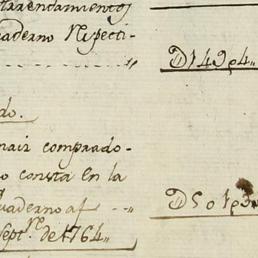 arrendamientos
uaderno Respecti-
D149p4
do.
mair comprado-
o consta en la
uaderno af
Septre. de 1764
D501p3